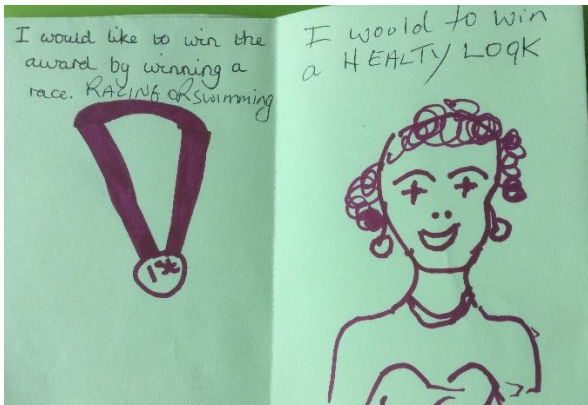 I would like to win the
award by winning a
race. RACING OR swimming
1st
I would to win
a HEALTY LOOK